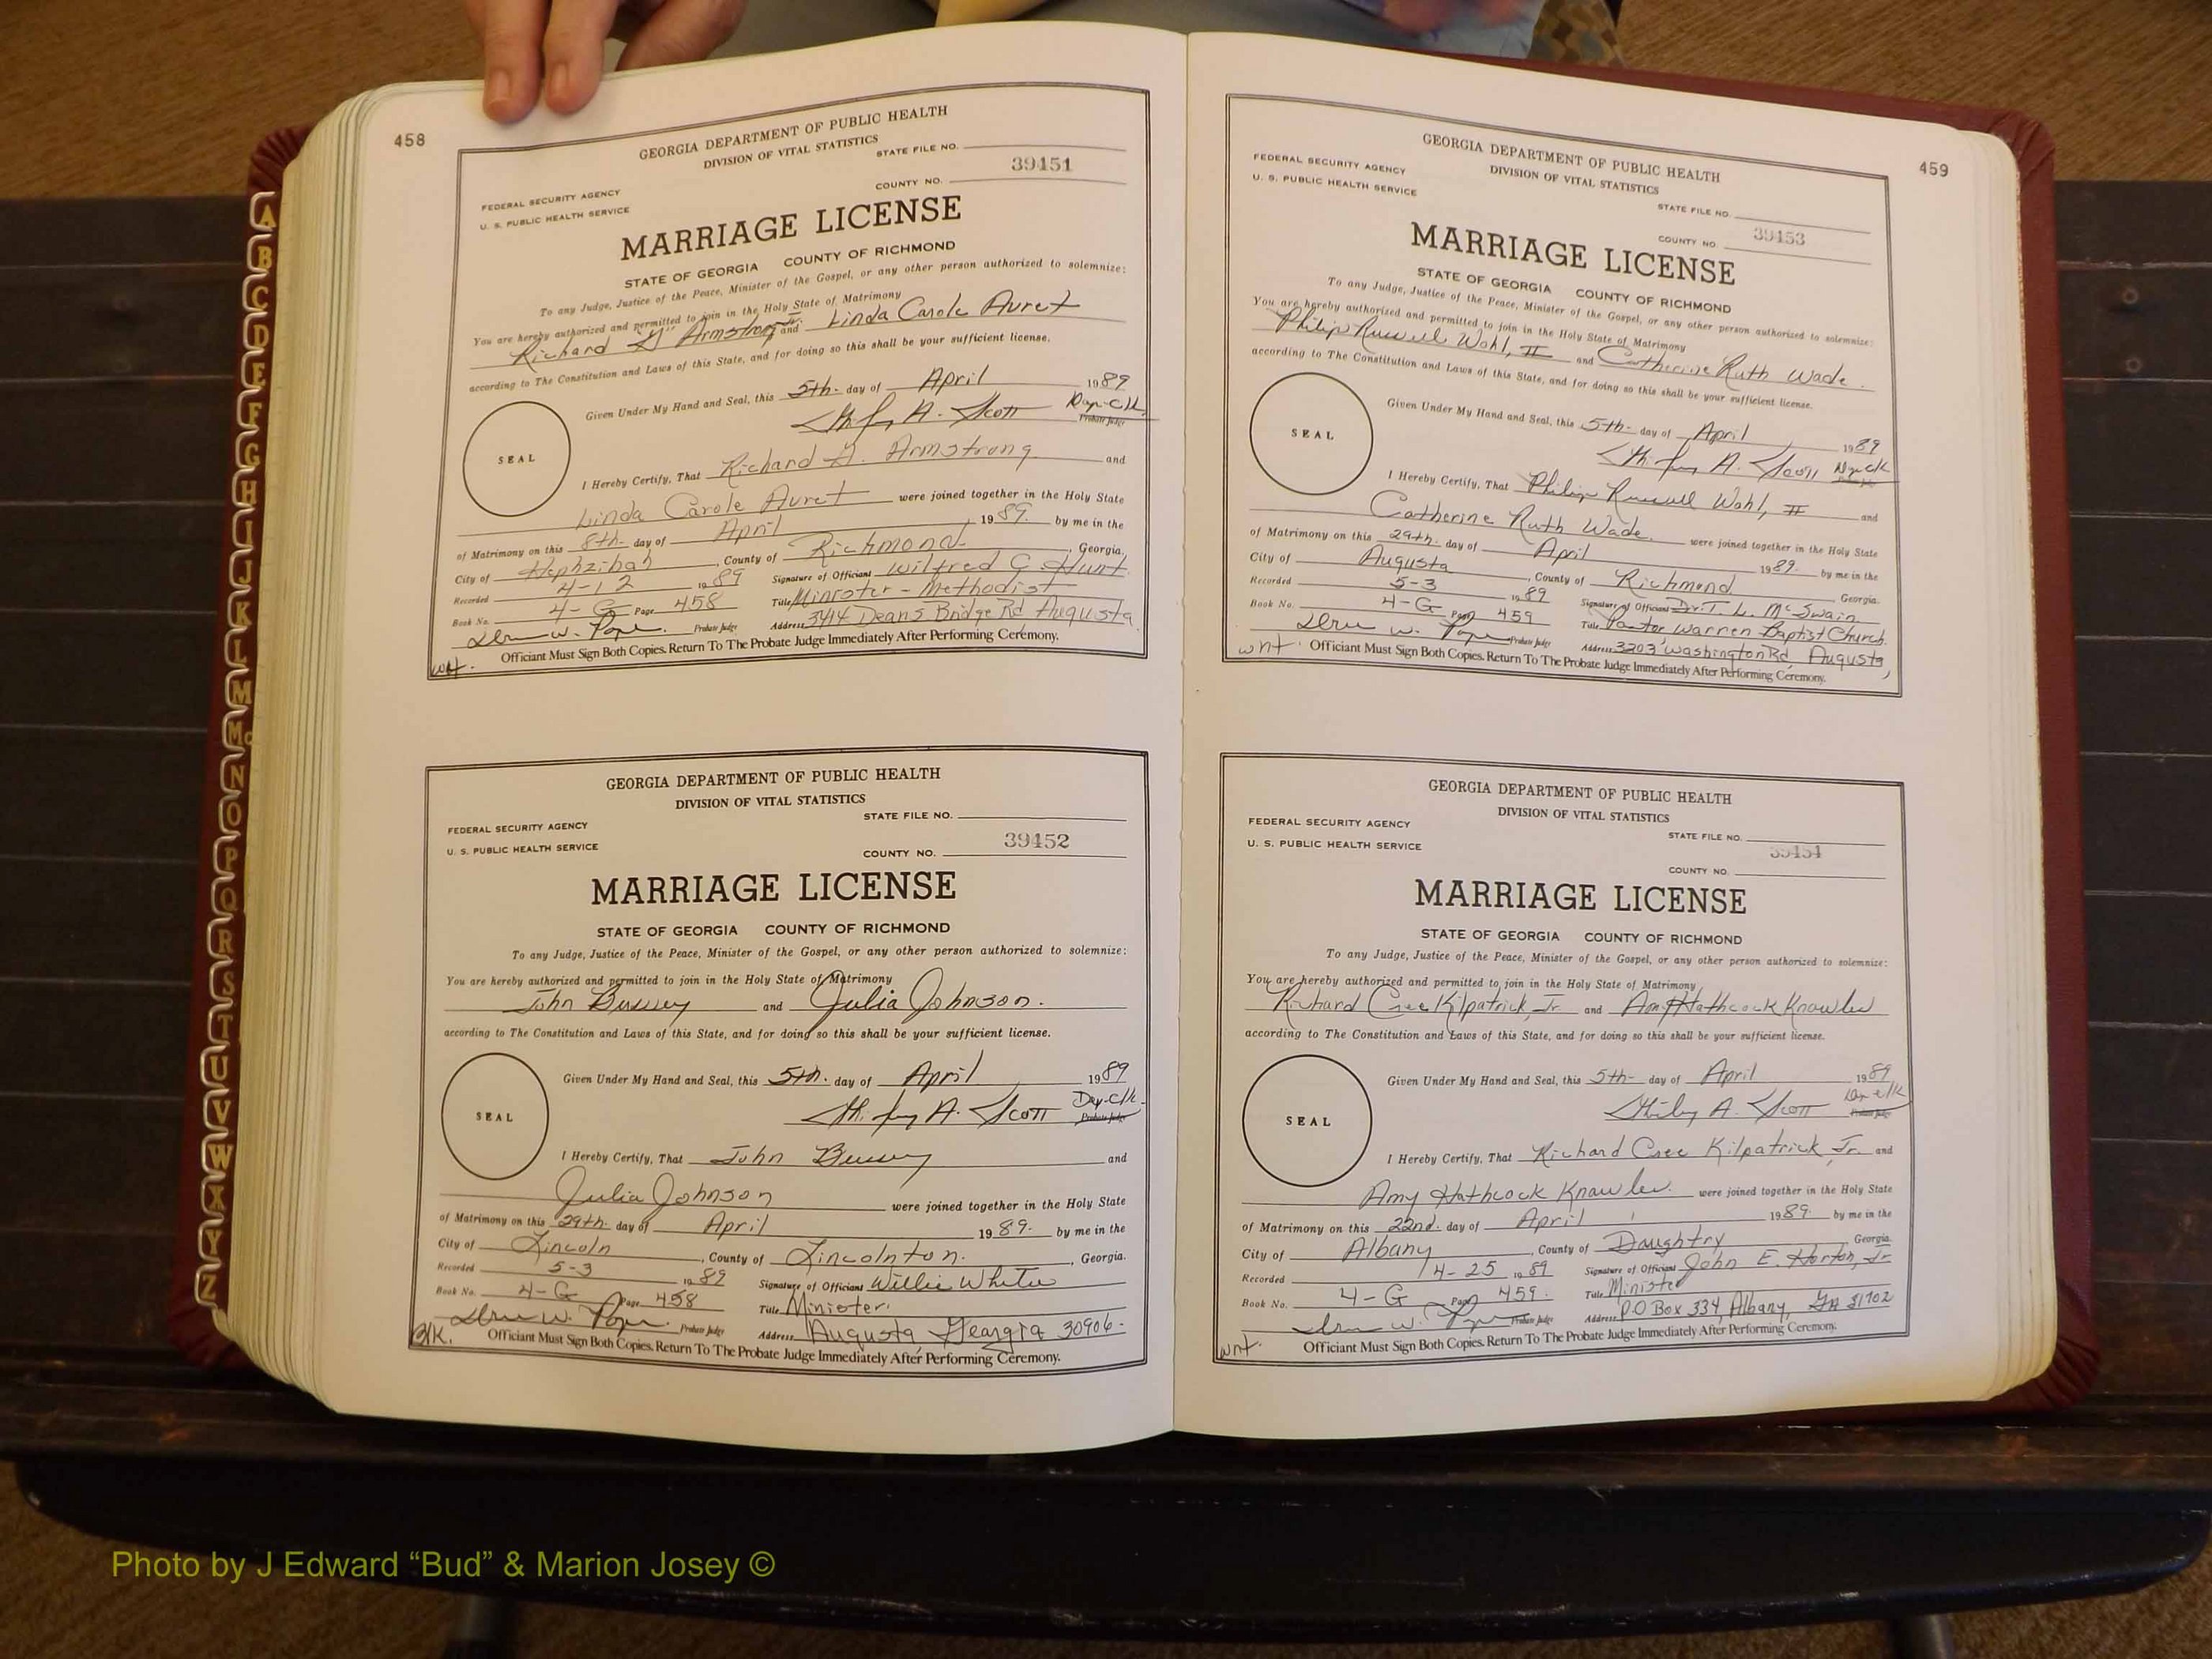 458
GEORGIA DEPARTMENT OF PUBLIC HEALTH
DIVISION OF VITAL STATISTICS
STATE FILE NO.
39451
FEDERAL SECURITY AGENCY
COUNTY NO.
U. S. PUBLIC HEALTH SERVICE
MARRIAGE LICENSE
STATE OF GEORGIA COUNTY OF RICHMOND
To any Judge, Justice of the Peace, Minister of the Gospel, or any other person authorized to solemnize:
You are hereby authorized and permitted to join in the Holy State of Matrimony
Richard "G" Armstrong and Linda Carole Avret
according to The Constitution and Laws of this State, and for doing so this shall be your sufficient license.
Given Under My Hand and Seal, this 5th. day of April 1989
A. Scott Dep-Clk.
Probate Judge
SEAL
I Hereby Certify, That Richard G. Armstrong and
Linda Carole Avret were joined together in the Holy State
of Matrimony on this 8th. day of April 1989. by me in the
City of Hephzibah, County of Richmond, Georgia.
Recorded 4-12 1989 Signature of Officiant Wilfred G. Hunt
Book No. 4-G Page 458 Title Minister - Methodist
W. Pope. Probate Judge Address 3414 Deans Bridge Rd Augusta
Officiant Must Sign Both Copies. Return To The Probate Judge Immediately After Performing Ceremony.
GEORGIA DEPARTMENT OF PUBLIC HEALTH
DIVISION OF VITAL STATISTICS
STATE FILE NO.
FEDERAL SECURITY AGENCY
39452
U. S. PUBLIC HEALTH SERVICE
COUNTY NO.
MARRIAGE LICENSE
STATE OF GEORGIA COUNTY OF RICHMOND
To any Judge, Justice of the Peace, Minister of the Gospel, or any other person authorized to solemnize:
You are hereby authorized and permitted to join in the Holy State of Matrimony
John Bussey and Julia Johnson.
according to The Constitution and Laws of this State, and for doing so this shall be your sufficient license.
Given Under My Hand and Seal, this 5th. day of April 1989
A. Scott Dep-Clk.
Probate Judge
SEAL
I Hereby Certify, That John Bussey and
Julia Johnson were joined together in the Holy State
of Matrimony on this 29th. day of April 1989. by me in the
City of Lincoln, County of Lincolnton., Georgia.
Recorded 5-3 1989 Signature of Officiant Willie White
Book No. 4-G Page 458 Title Minister.
W. Pope. Probate Judge Address Augusta Georgia 30906.
Blk. Officiant Must Sign Both Copies. Return To The Probate Judge Immediately After Performing Ceremony.
459
GEORGIA DEPARTMENT OF PUBLIC HEALTH
DIVISION OF VITAL STATISTICS
FEDERAL SECURITY AGENCY
U. S. PUBLIC HEALTH SERVICE
STATE FILE NO.
39453
COUNTY NO.
MARRIAGE LICENSE
STATE OF GEORGIA COUNTY OF RICHMOND
To any Judge, Justice of the Peace, Minister of the Gospel, or any other person authorized to solemnize:
You are hereby authorized and permitted to join in the Holy State of Matrimony
Philip Russell Wohl, II and Catherine Ruth Wade.
according to The Constitution and Laws of this State, and for doing so this shall be your sufficient license.
Given Under My Hand and Seal, this 5th- day of April 1989
A. Scott
SEAL
I Hereby Certify, That Philip Russell Wohl, II and
Catherine Ruth Wade. were joined together in the Holy State
of Matrimony on this 29th. day of April 1989. by me in the
City of Augusta, County of Richmond Georgia.
Recorded 5-3 1989 Signature of Officiant Dr. T. L. McSwain
Book No. 4-G Page 459 Title Pastor Warren Baptist Church.
W. Pope Probate Judge Address 3203 Washington Rd, Augusta,
wnt. Officiant Must Sign Both Copies. Return To The Probate Judge Immediately After Performing Ceremony.
GEORGIA DEPARTMENT OF PUBLIC HEALTH
DIVISION OF VITAL STATISTICS
FEDERAL SECURITY AGENCY
STATE FILE NO.
U. S. PUBLIC HEALTH SERVICE
39454
COUNTY NO.
MARRIAGE LICENSE
STATE OF GEORGIA COUNTY OF RICHMOND
To any Judge, Justice of the Peace, Minister of the Gospel, or any other person authorized to solemnize:
You are hereby authorized and permitted to join in the Holy State of Matrimony
Richard Cree Kilpatrick, Jr. and Amy Hathcock Knowles
according to The Constitution and Laws of this State, and for doing so this shall be your sufficient license.
Given Under My Hand and Seal, this 5th- day of April 1989
Shirley A. Scott
Probate Judge
SEAL
I Hereby Certify, That Richard Cree Kilpatrick, Jr. and
Amy Hathcock Knowles. were joined together in the Holy State
of Matrimony on this 22nd. day of April 1989. by me in the
City of Albany, County of Daughtry Georgia.
Recorded 4-25 1989 Signature of Officiant John E. Horton, Jr
Book No. 4-G Page 459. Title Minister
W. Pope Probate Judge Address P.O Box 334, Albany, GA 31702
wnt. Officiant Must Sign Both Copies. Return To The Probate Judge Immediately After Performing Ceremony.
A
B
C
D
E
F
G
H
I
J
K
L
M
Mc
N
O
P
Q
R
S
T
U
V
W
X
Y
Z
Photo by J Edward “Bud” & Marion Josey ©